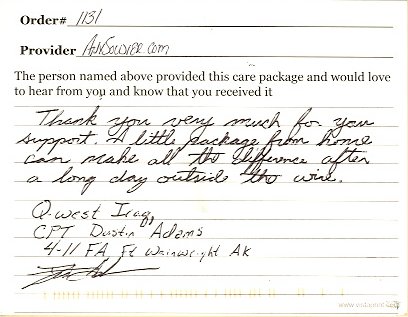 Order# 1131
Provider AdoptASoldier.com
The person named above provided this care package and would love
to hear from you and know that you received it
Thank you very much for your
support. A little package from home
can make all the difference after
a long day outside the wire.
Q-west Iraq,
CPT Dustin Adams
4-11 FA, Ft Wainwright AK